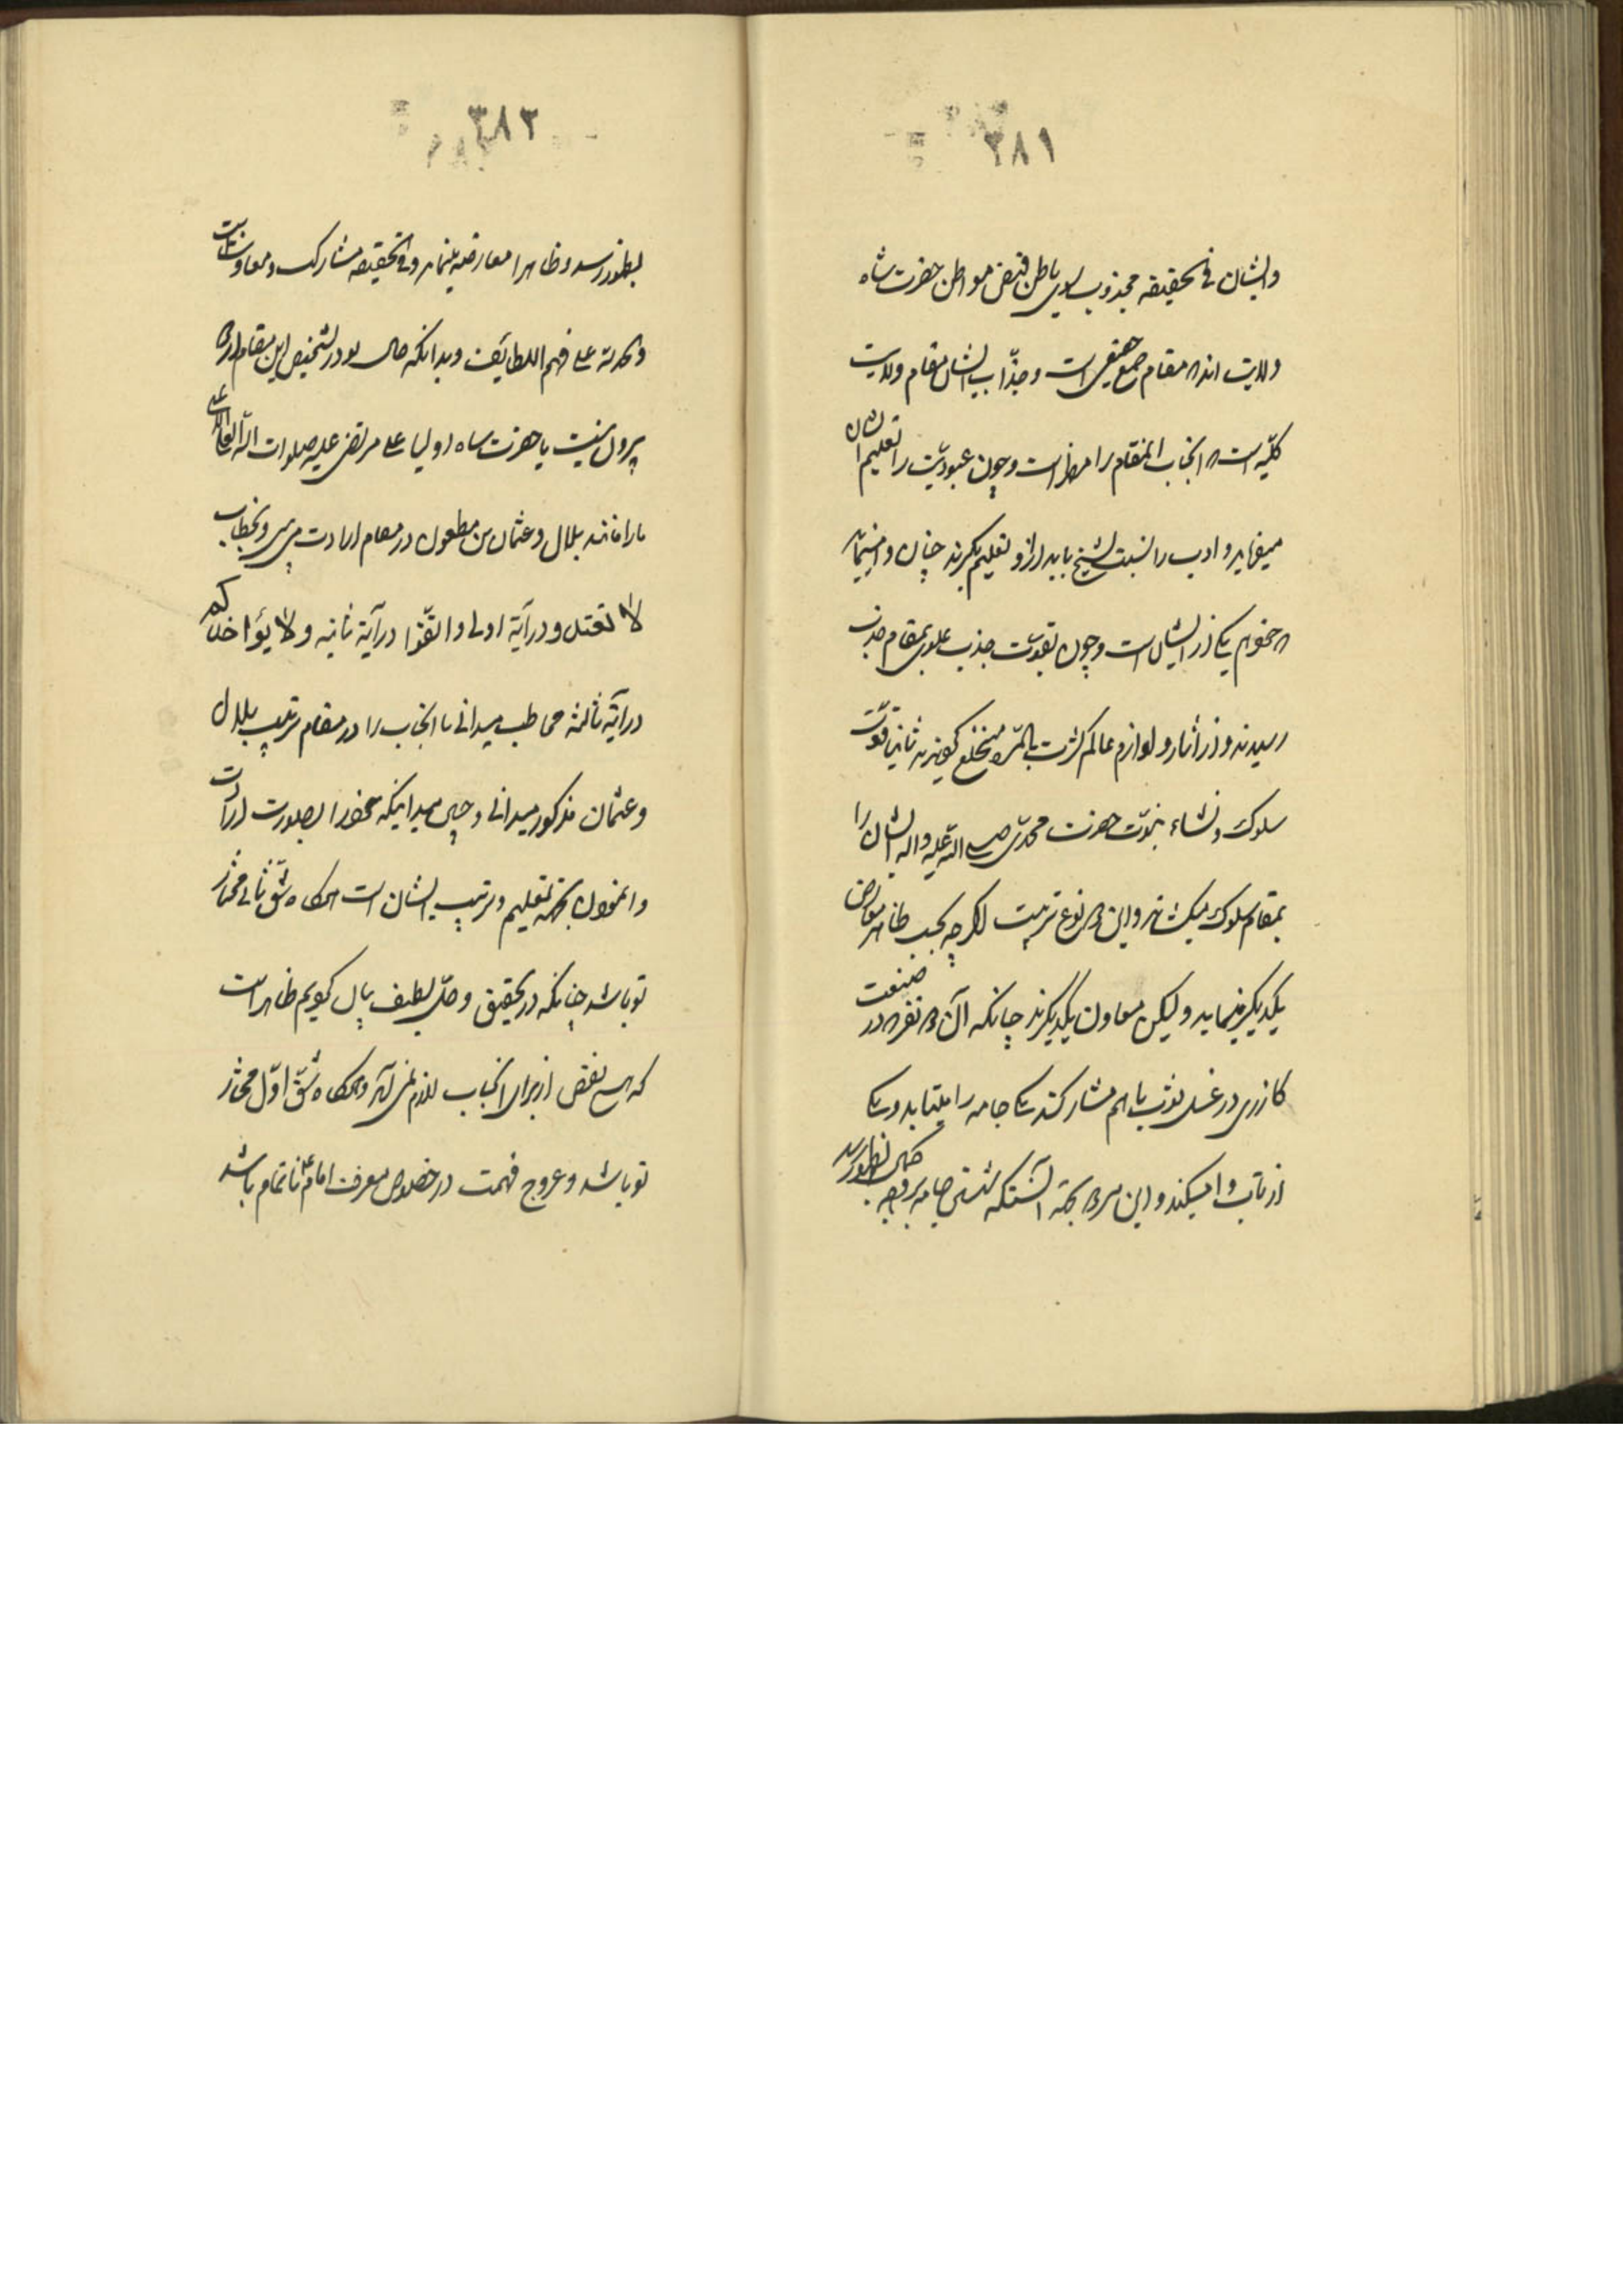 ۳۸۱
وایشان فی الحقیقه مجذوب بسوی باطن فیض مواطن حضرت شاه
ولایت اند که مقام جمع حقیقی است و جذّاب ایشان مقام ولایت
کلّیه است که انجناب انمقام را مظهر است و چون عبودیّت را تعلیم ایشان
میفرماید و ادب را نسبت بشیخ باید از او تعلیم بگیرند چنان وامینماید
که حضور هم یکی از ایشان است و چون بقوّت جذب علوی بمقام جذب
رسیدند و از اثار و لوازم عالم کثرت بالمرّه منخلع گردیدند ثانیا قوّت
سلوک و نشاء نبوّت حضرت محمدّی صلی الله علیه واله ایشان را
بمقام سلوک میکشاند و این دو نوع تربیت اگرچه بحسب ظاهر معارض
یکدیگر مینماید ولیکن معاون یکدیگرند چنانکه آن دو نفر که در صنعت
کازری در غسل ثوب باهم مشارکند یکی جامه را میتابد و یکی
از تاب وامیکند و این هر دو بجهة آنستکه شستن جامه بر وجه کمال بظهور رسد
۳۸۲
بظهور رسد و ظاهرا معارضه مینماید و فی الحقیقه مشارکت و معاونت است
والحمد لله علی فهم اللطایف وبدانکه حال تو در تشخیص این مقام از دو
بیرون نیست یا حضرت شاه اولیا علی مرتضی علیه صلوات الله العلی الاعلی
را مانند بلال و عثمان بن مظعون در مقام ارادت می بینی و بخطاب
لا تعتدوا در آیة اولی و اتقّوا در آیة ثانیه و لا یؤاخذکم
در آیة ثالثه مخاطب میدانی یا انجناب را در مقام تربیت بلال
و عثمان مذکور میدانی و چنین میدانیکه حضور بصورت ارادت
و انمودن بجهة تعلیم و تربیت ایشان است هرگاه شقّ ثانی مختار
تو باشد چنانکه در تحقیق و حلّ لطیف بیان کردیم ظاهر است
که هیچ نقص از برای انجناب لازم نمی آید و هرگاه شقّ اوّل مختار
تو باشد و عروج فهمت در خصوص معرفت امام ع ناتمام باشد